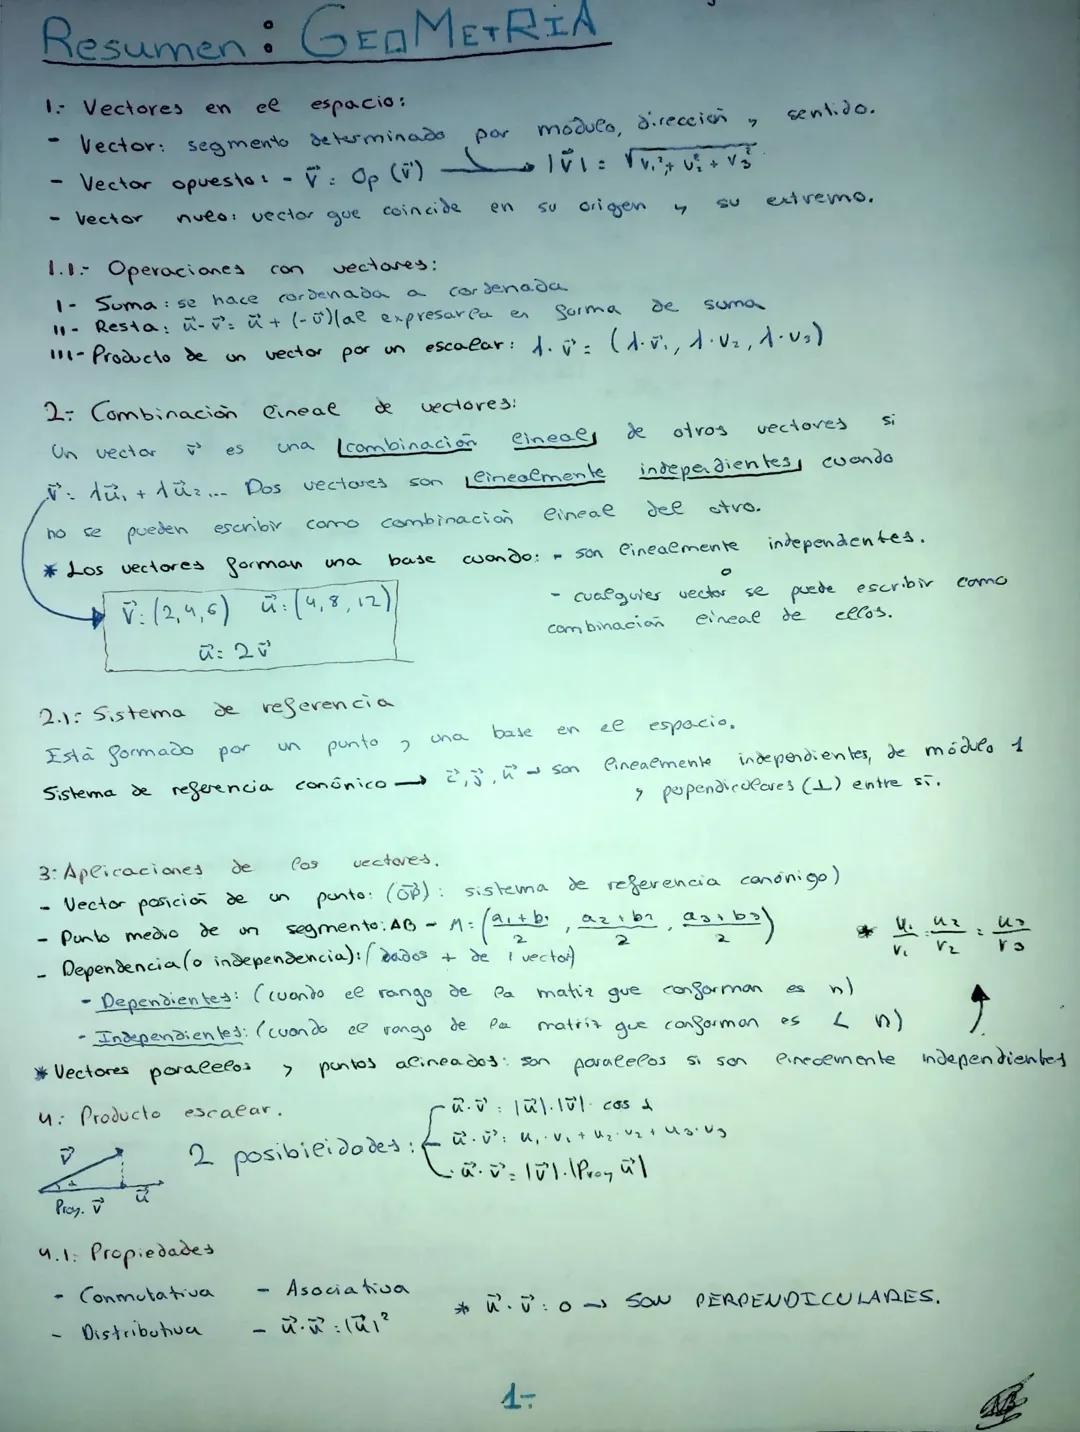 Resumen: GEOMETRIA
1.- Vectores en el espacio:
- Vector: segmento determinado por modulo, dirección y sentido.
- Vector opuesto: - v⃗ = Op (v⃗) → |v⃗| = √v₁² + v₂² + v₃²
- Vector nulo: vector que coincide en su origen y su extremo.
1.1.- Operaciones con vectores:
I- Suma: se hace cordenada a cordenada
II- Resta: u⃗ - v⃗ = u⃗ + (-v⃗) (al expresarla en forma de suma
III- Producto de un vector por un escalar: λ · v⃗ = (λ·v⃗₁, λ·v₂, λ·v₃)
2.- Combinación lineal de vectores:
Un vector v⃗ es una combinación lineal de otros vectores si
v⃗ = λu⃗₁ + λu⃗₂... Dos vectores son linealmente independientes cuando
no se pueden escribir como combinación lineal del otro.
* Los vectores forman una base cuando: - son linealmente independentes.
- cualquier vector se puede escribir como
combinación lineal de ellos.
v⃗ = (2,4,6) u⃗ = (4,8,12)
u⃗ = 2v⃗
2.1.- Sistema de referencia
Está formado por un punto y una base en el espacio.
Sistema de referencia canónico → i⃗, j⃗, k⃗ → son linealmente independientes, de módulo 1
y perpendiculares (⊥) entre sí.
3.- Aplicaciones de los vectores.
- Vector posición de un punto: (OP⃗): sistema de referencia canónigo)
- Punto medio de un segmento: AB - M = (a₁ + b₁ / 2, a₂ + b₂ / 2, a₃ + b₃ / 2)
* u₁/v₁ = u₂/v₂ = u₃/v₃
- Dependencia (o independencia): (dados + de 1 vector)
- Dependientes: (cuando el rango de la matiz que conforman es n)
- Independientes: (cuando el rango de la matriz que conforman es < n)
* Vectores paralelos y puntos alineados: son paralelos si son linealmente independientes
4.- Producto escalar.
2 posibilidades:
u⃗ · v⃗ = |u⃗| · |v⃗| · cos α
u⃗ · v⃗ = u₁ · v₁ + u₂ · v₂ + u₃ · v₃
u⃗ · v⃗ = |v⃗| · |Proy u⃗|
v⃗
α
u⃗
Proy. v⃗
4.1.- Propiedades
- Conmutativa - Asociativa
- Distributiva - u⃗ · u⃗ = |u⃗|²
* u⃗ · v⃗ = 0 → SON PERPENDICULARES.
1-